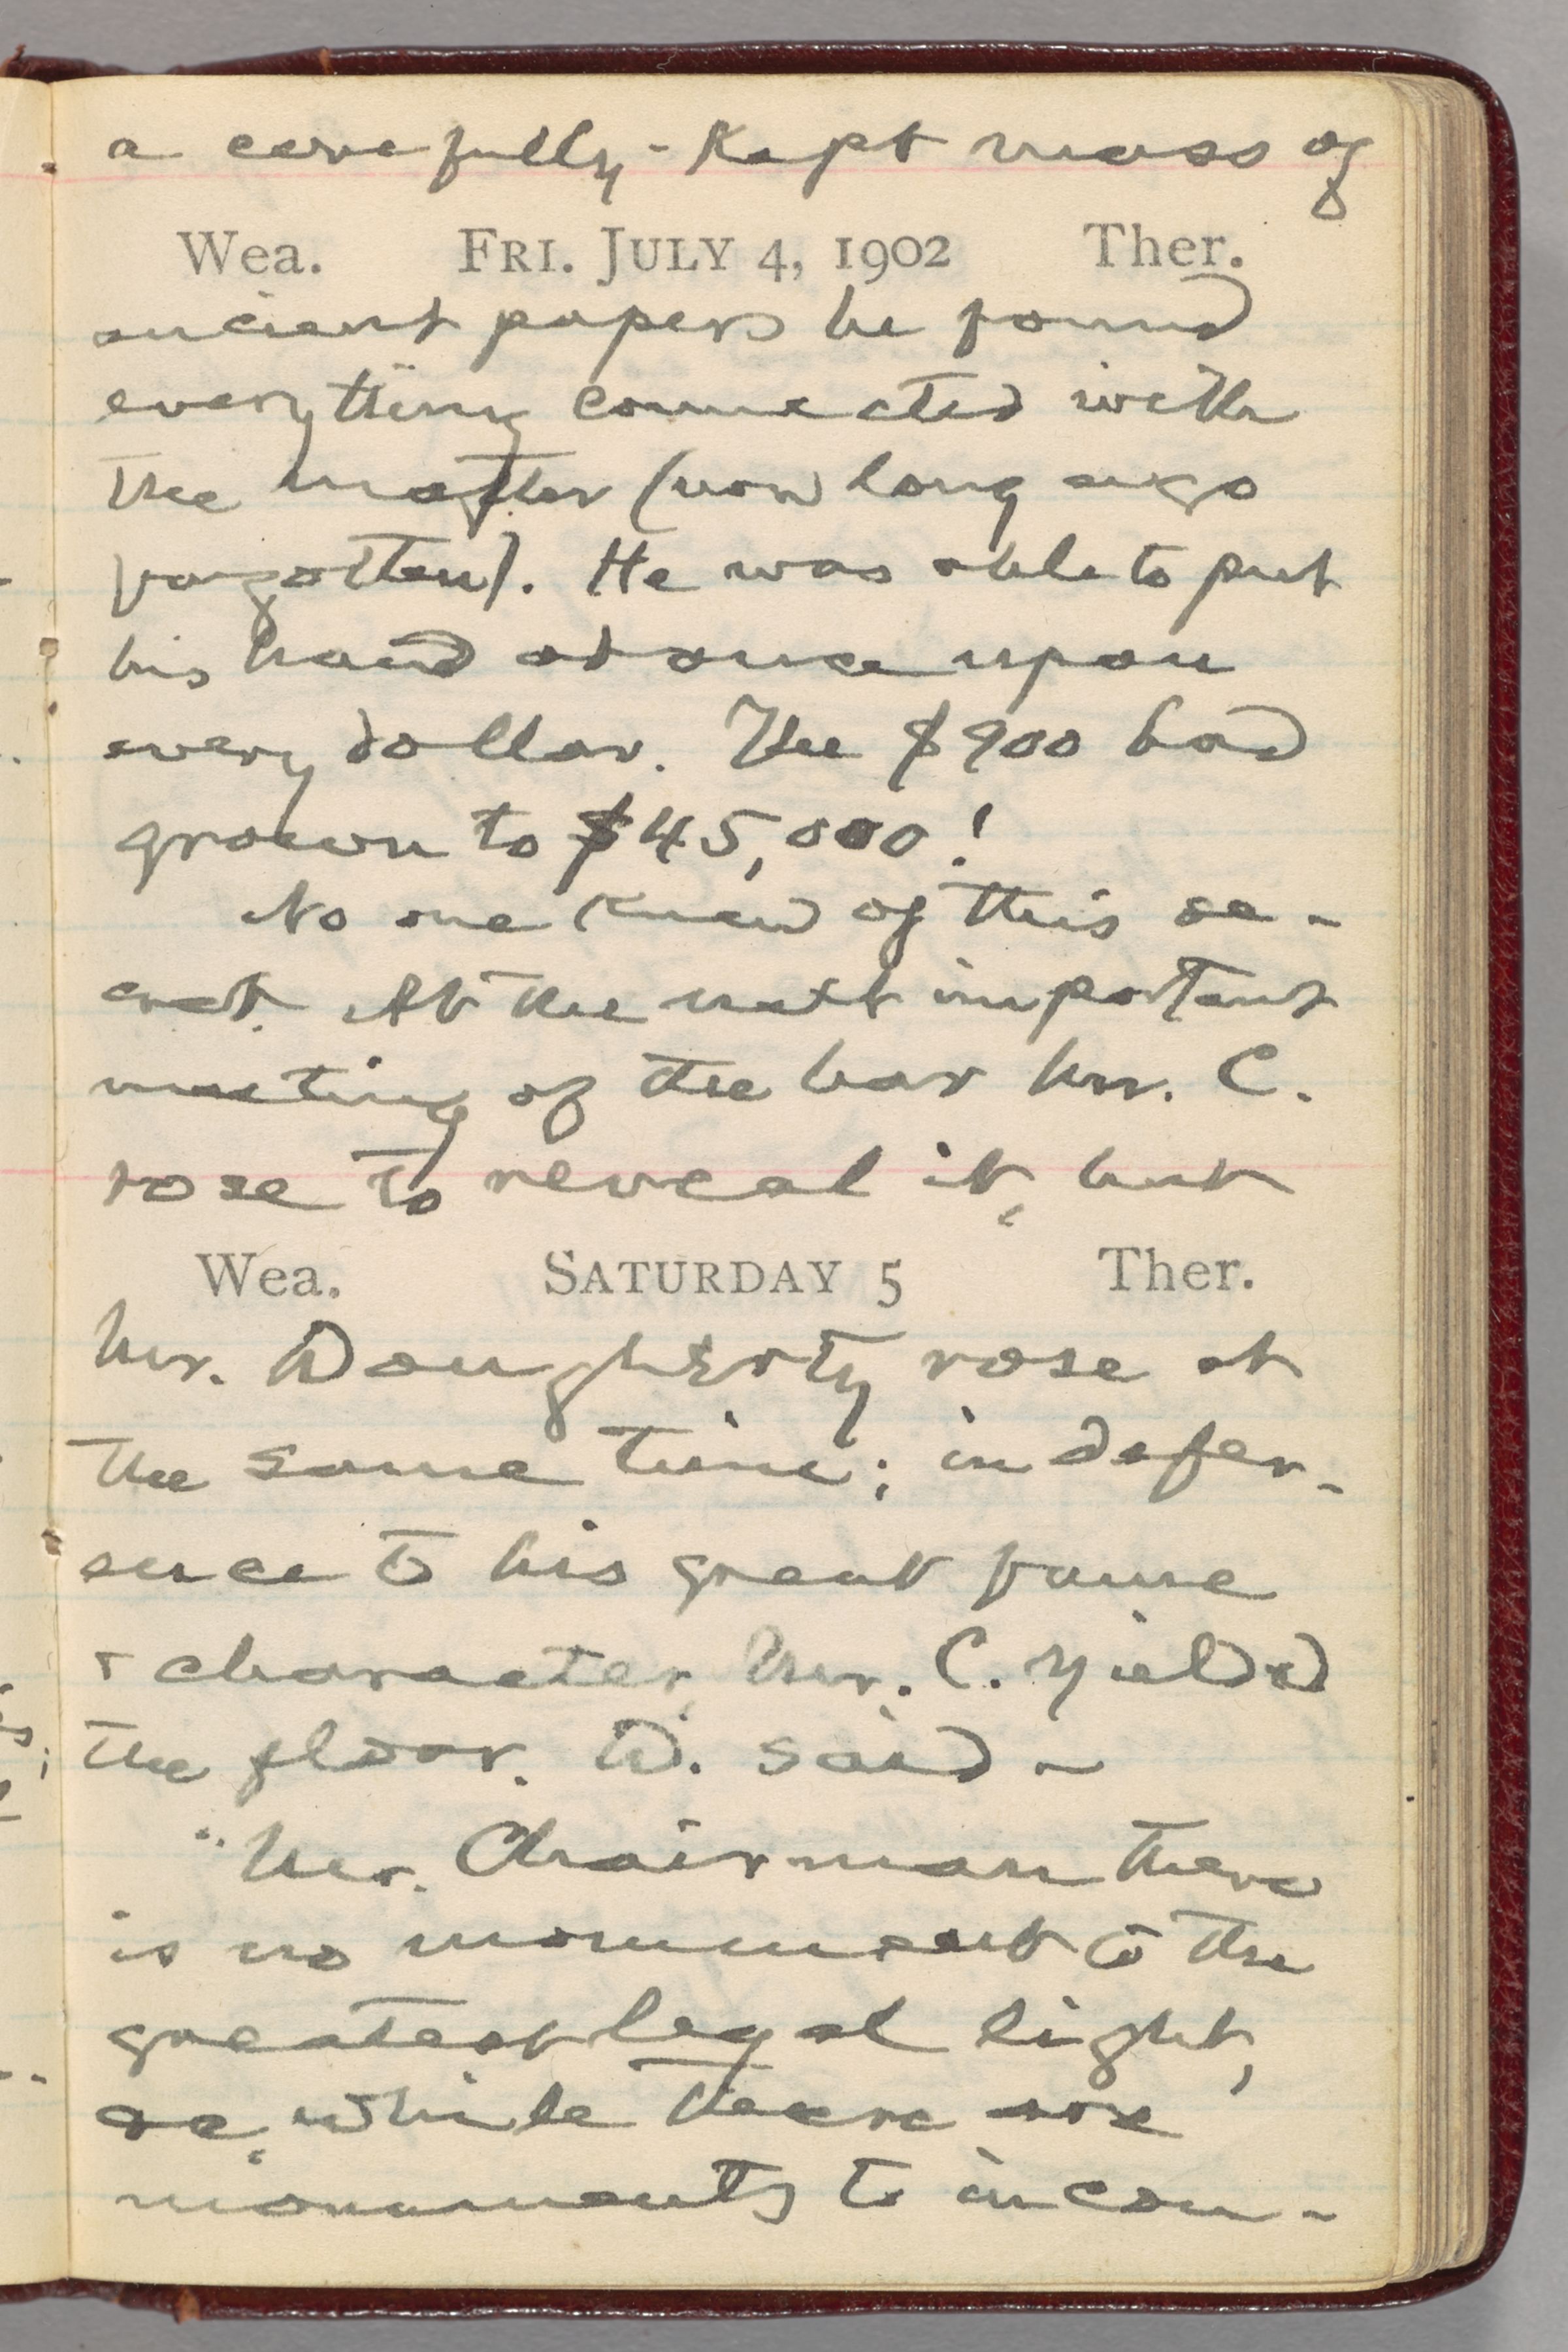 a carefully-kept mass of
Wea. FRI. JULY 4, 1902 Ther.
ancient papers he found
everything connected with
the matter (now long ago
forgotten). He was able to put
his hand at once upon
every dollar. The $900 had
grown to $45,000!
No one knew of this se-
cret. At the next important
meeting of the bar Mr. C.
rose to reveal it, but
Wea. SATURDAY 5 Ther.
Mr. Dougherty rose at
the same time; in defer-
ence to his great fame
& character, Mr. C. yielded
the floor. D. said—
"Mr. Chairman there
is no monument to the
greatest legal light,
while there are
monuments to incon-